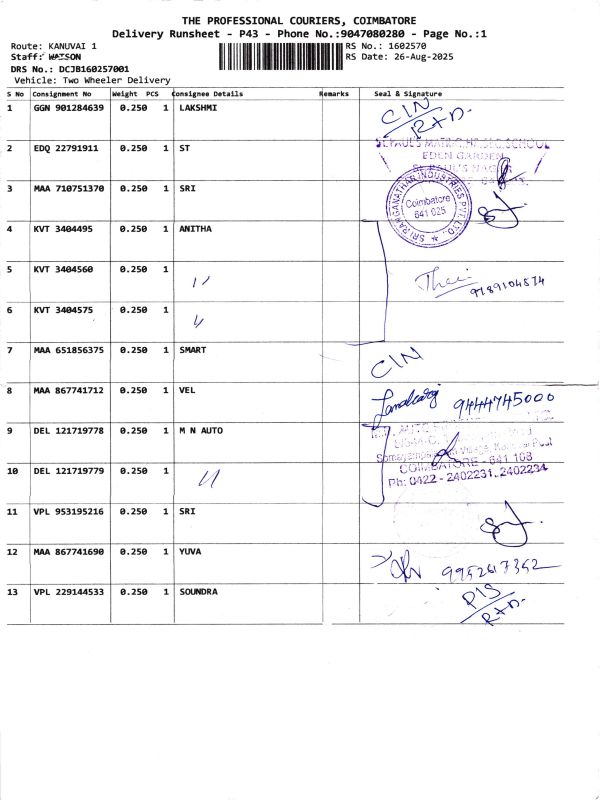 THE PROFESSIONAL COURIERS, COIMBATORE
Delivery Runsheet - P43 - Phone No.:9047080280 - Page No.:1
Route: KANUVAI 1 RS No.: 1602570
Staff: WATSON RS Date: 26-Aug-2025
DRS No.: DCJB160257001
Vehicle: Two Wheeler Delivery
S No Consignment No Weight PCS Consignee Details Remarks Seal & Signature
1 GGN 901284639 0.250 1 LAKSHMI CIN
R+D.
2 EDQ 22791911 0.250 1 ST ST.PAUL'S MATRIC.HR.SEC.SCHOOL
EDEN GARDEN
ST.PAUL'S NAGAR
3 MAA 710751370 0.250 1 SRI SRI RANGANATHAR INDUSTRIES PVT. LTD.
Coimbatore
641 025
4 KVT 3404495 0.250 1 ANITHA
5 KVT 3404560 0.250 1 〃 9789104574
6 KVT 3404575 0.250 1 〃
7 MAA 651856375 0.250 1 SMART CIN
8 MAA 867741712 0.250 1 VEL 9444745000
9 DEL 121719778 0.250 1 M N AUTO AUTO
Post
10 DEL 121719779 0.250 1 〃 COIMBATORE - 641 108
Ph: 0422 - 2402231, 2402234
11 VPL 953195216 0.250 1 SRI
12 MAA 867741690 0.250 1 YUVA 9952617352
13 VPL 229144533 0.250 1 SOUNDRA PIS
R+D.